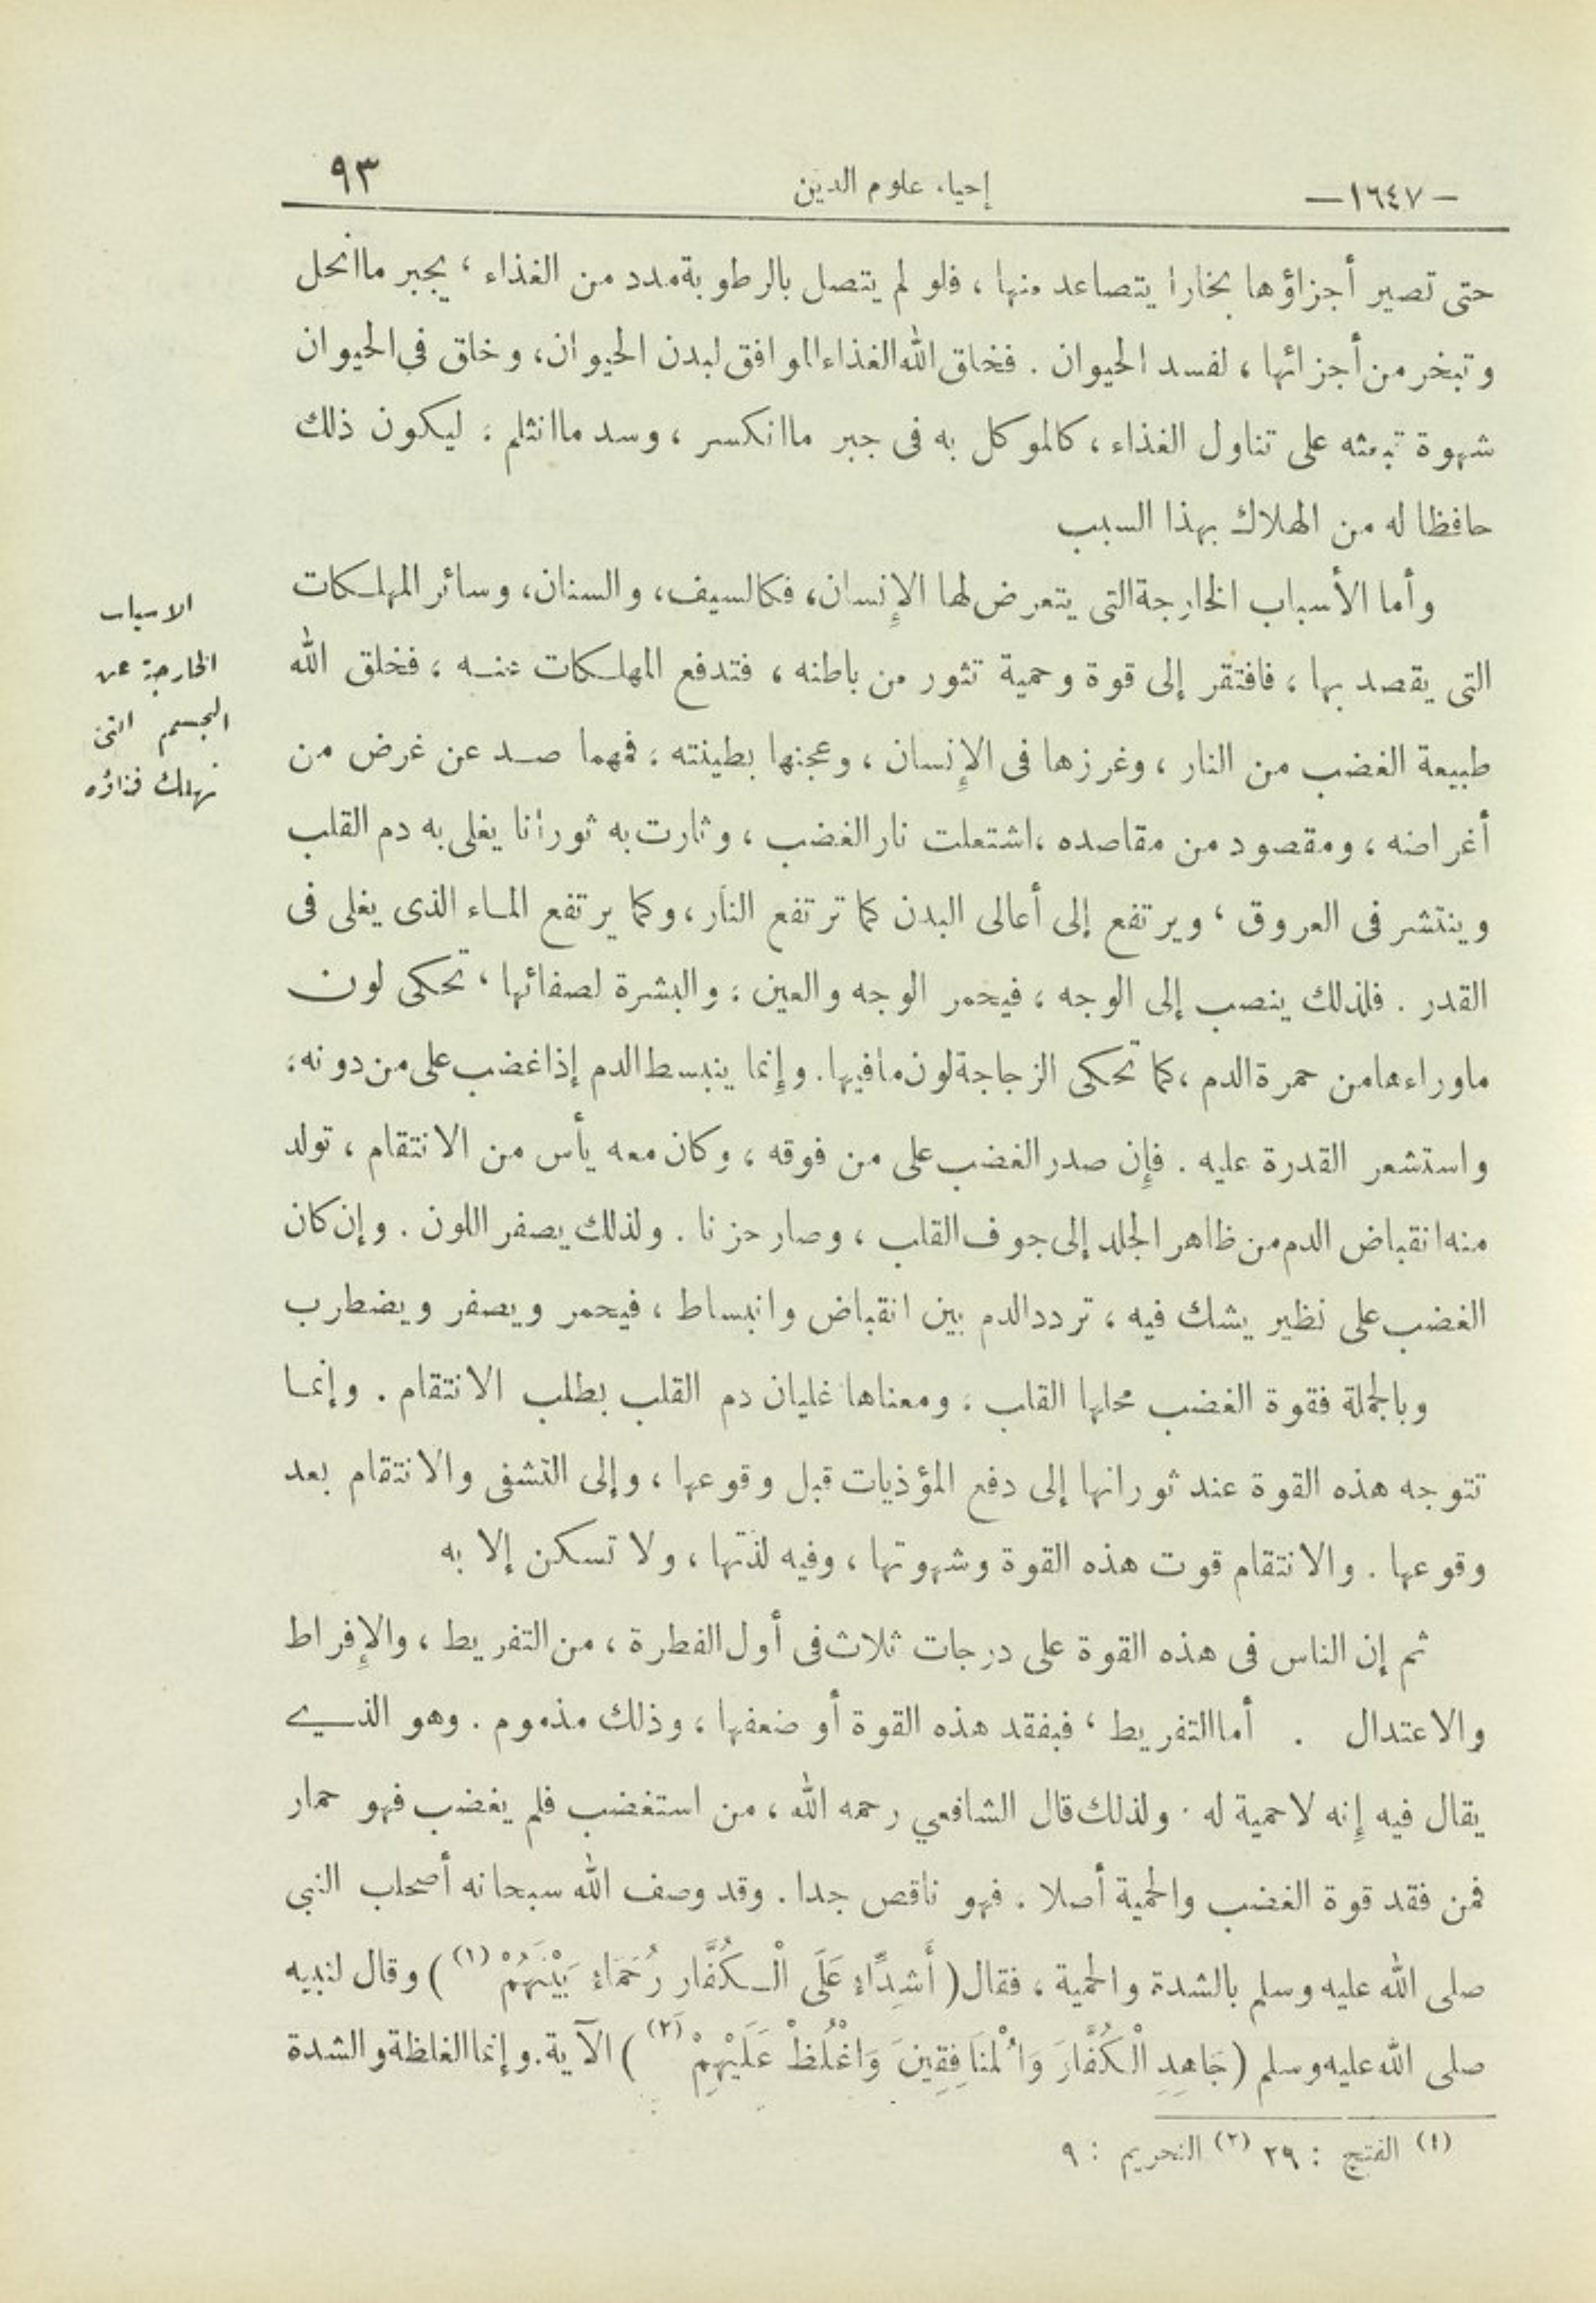 —١٦٤٧— إحياء علوم الدين ٩٣
حتى تصير أجزاؤها بخارا يتصاعد منها ، فلو لم يتصل بالرطوبة مدد من الغذاء ، يجبر ما انحل
وتبخر من أجزائها ، لفسد الحيوان . فخلق الله الغذاء الموافق لبدن الحيوان، وخلق في الحيوان
شهوة تبعثه على تناول الغذاء ، كالموكل به فى جبر ما انكسر ، وسد ما انثلم ، ليكون ذلك
حافظا له من الهلاك بهذا السبب
وأما الأسباب الخارجة التى يتعرض لها الإنسان، فكالسيف، والسنان، وسائر المهلكات
التى يقصد بها ، فافتقر إلى قوة وحمية تثور من باطنه ، فتدفع المهلكات عنه ، فخلق الله
طبيعة الغضب من النار ، وغرزها فى الإنسان ، وعجنها بطينته ، فمهما صد عن غرض من
أغراضه ، ومقصود من مقاصده ، اشتعلت نار الغضب ، وثارت به ثورانا يغلى به دم القلب
وينتشر فى العروق ، ويرتفع إلى أعالى البدن كما ترتفع النار ، وكما يرتفع الماء الذى يغلى فى
القدر . فلذلك ينصب إلى الوجه ، فيحمر الوجه والعين ، والبشرة لصفائها ، تحكى لون
ماوراءها من حمرة الدم ، كما تحكى الزجاجة لون مافيها . وإنما ينبسط الدم إذا غضب على من دونه،
واستشعر القدرة عليه . فإن صدر الغضب على من فوقه ، وكان معه يأس من الانتقام ، تولد
منه انقباض الدم من ظاهر الجلد إلى جوف القلب ، وصار حزنا . ولذلك يصفر اللون . وإن كان
الغضب على نظير يشك فيه ، تردد الدم بين انقباض وانبساط ، فيحمر ويصفر ويضطرب
وبالجملة فقوة الغضب محلها القلب ، ومعناها غليان دم القلب بطلب الانتقام . وإنما
تتوجه هذه القوة عند ثورانها إلى دفع المؤذيات قبل وقوعها ، وإلى التشفى والانتقام بعد
وقوعها . والانتقام قوت هذه القوة وشهوتها ، وفيه لذتها ، ولا تسكن إلا به
ثم إن الناس فى هذه القوة على درجات ثلاث فى أول الفطرة ، من التفريط ، والإفراط
والاعتدال . أما التفريط ، فبفقد هذه القوة أو ضعفها ، وذلك مذموم . وهو الذي
يقال فيه إنه لا حمية له . ولذلك قال الشافعي رحمه الله ، من استغضب فلم يغضب فهو حمار
فمن فقد قوة الغضب والحمية أصلا . فهو ناقص جدا . وقد وصف الله سبحانه أصحاب النبى
صلى الله عليه وسلم بالشدة والحمية ، فقال ( أَشِدَّاءُ عَلَى الْكُفَّارِ رُحَمَاءُ بَيْنَهُمْ (١) ) وقال لنبيه
صلى الله عليه وسلم ( جَاهِدِ الْكُفَّارَ وَالْمُنَافِقِينَ وَاغْلُظْ عَلَيْهِمْ (٢) ) الآية . وإنما الغلظة والشدة
الاسباب
الخارجة عن
الجسم التى
تهلك فناؤه
(١) الفتح : ٢٩ (٢) التحريم : ٩